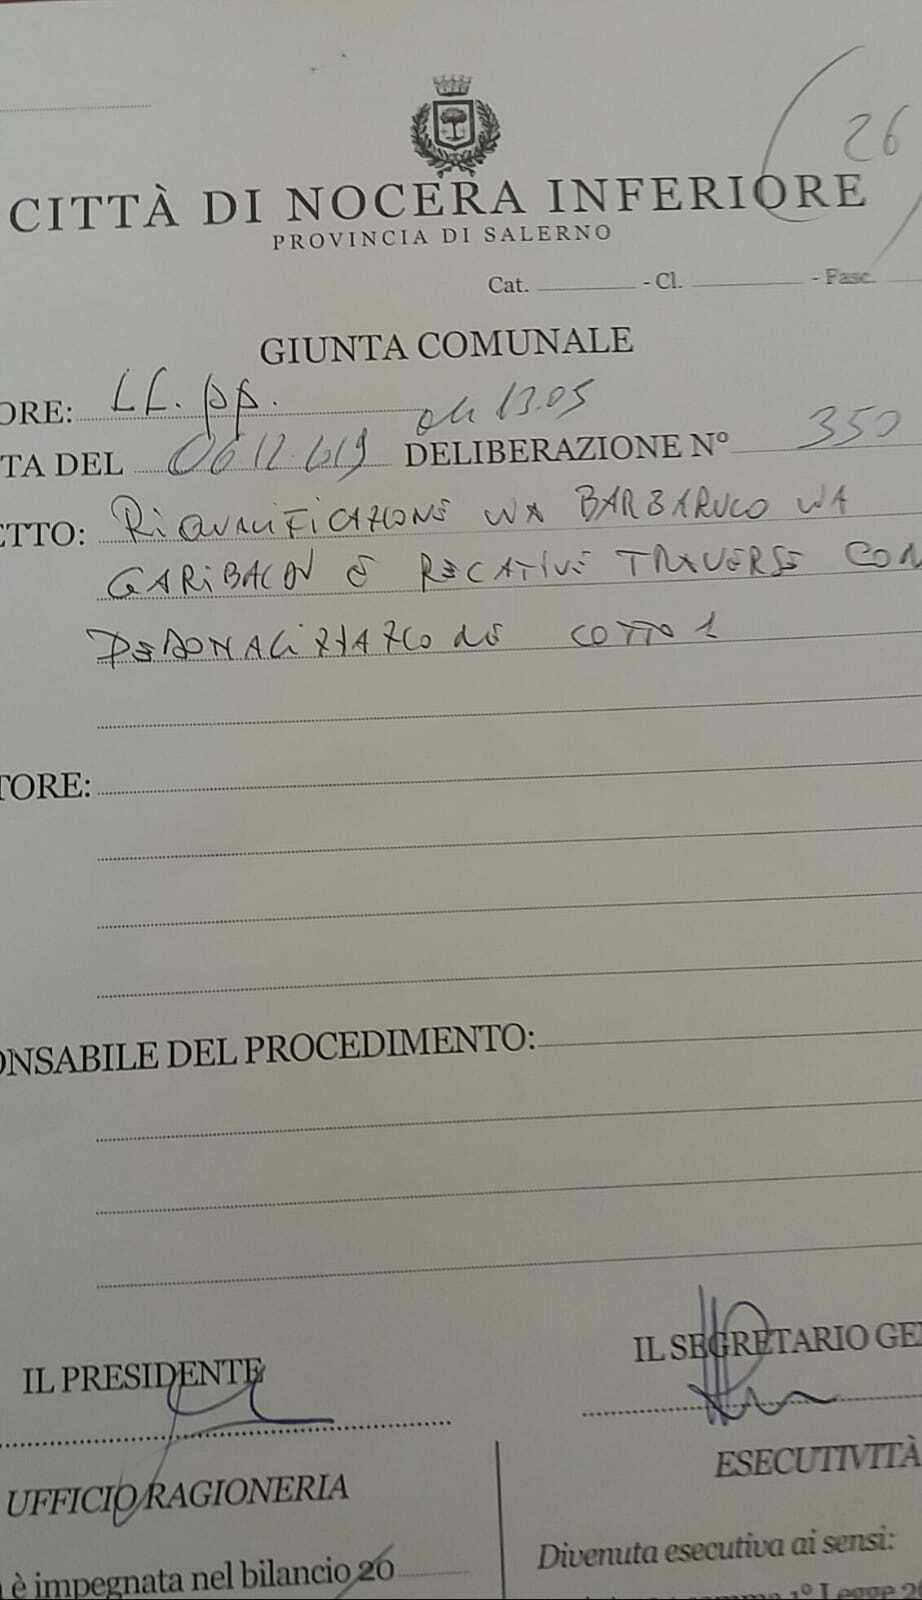 26
CITTÀ DI NOCERA INFERIORE
PROVINCIA DI SALERNO
Cat. - Cl. - Fasc.
GIUNTA COMUNALE
ORE: LL. pp.
ore 13.05
TA DEL 06.12.2019 DELIBERAZIONE N° 350
ETTO: RiQUALIFICAZIONE VIA BARBARULO VIA
GARIBALDI E RELATIVE TRAVERSE CON
PEDONALIZZAZIONE LOTTO 1
TORE:
ONSABILE DEL PROCEDIMENTO:
IL PRESIDENTE
IL SEGRETARIO GE
UFFICIO RAGIONERIA
ESECUTIVITÀ
Divenuta esecutiva ai sensi:
è impegnata nel bilancio 20
comma 1° Legge 2